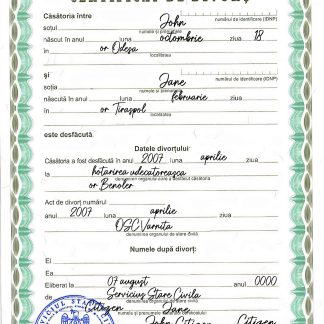 CERTIFICAT DE DIVORȚ
Căsătoria între
John
numărul de identificare (IDNP)
soțul
numele și prenumele
născut în anul luna octombrie ziua 18
în or Odesa
localitatea
și
numărul de identificare (IDNP)
soția Jane
numele și prenumele
născută în anul luna februarie ziua
în or Tiraspol
localitatea
este desfăcută.
Datele divorțului
Căsătoria a fost desfăcută în anul 2007 luna aprilie ziua
la hotarirea udecatoreasca
denumirea organului care a desfăcut căsătoria
or Benoler
Act de divorț numărul
anul 2007 luna aprilie ziua
OSC Varnita
denumirea organului de stare civilă
Numele după divorț:
El
Ea
Eliberat la 07 august anul 0000
Serviciul Stare Civila
denumirea organului de stare civilă
Citizen Jane
John Citizen Citizen